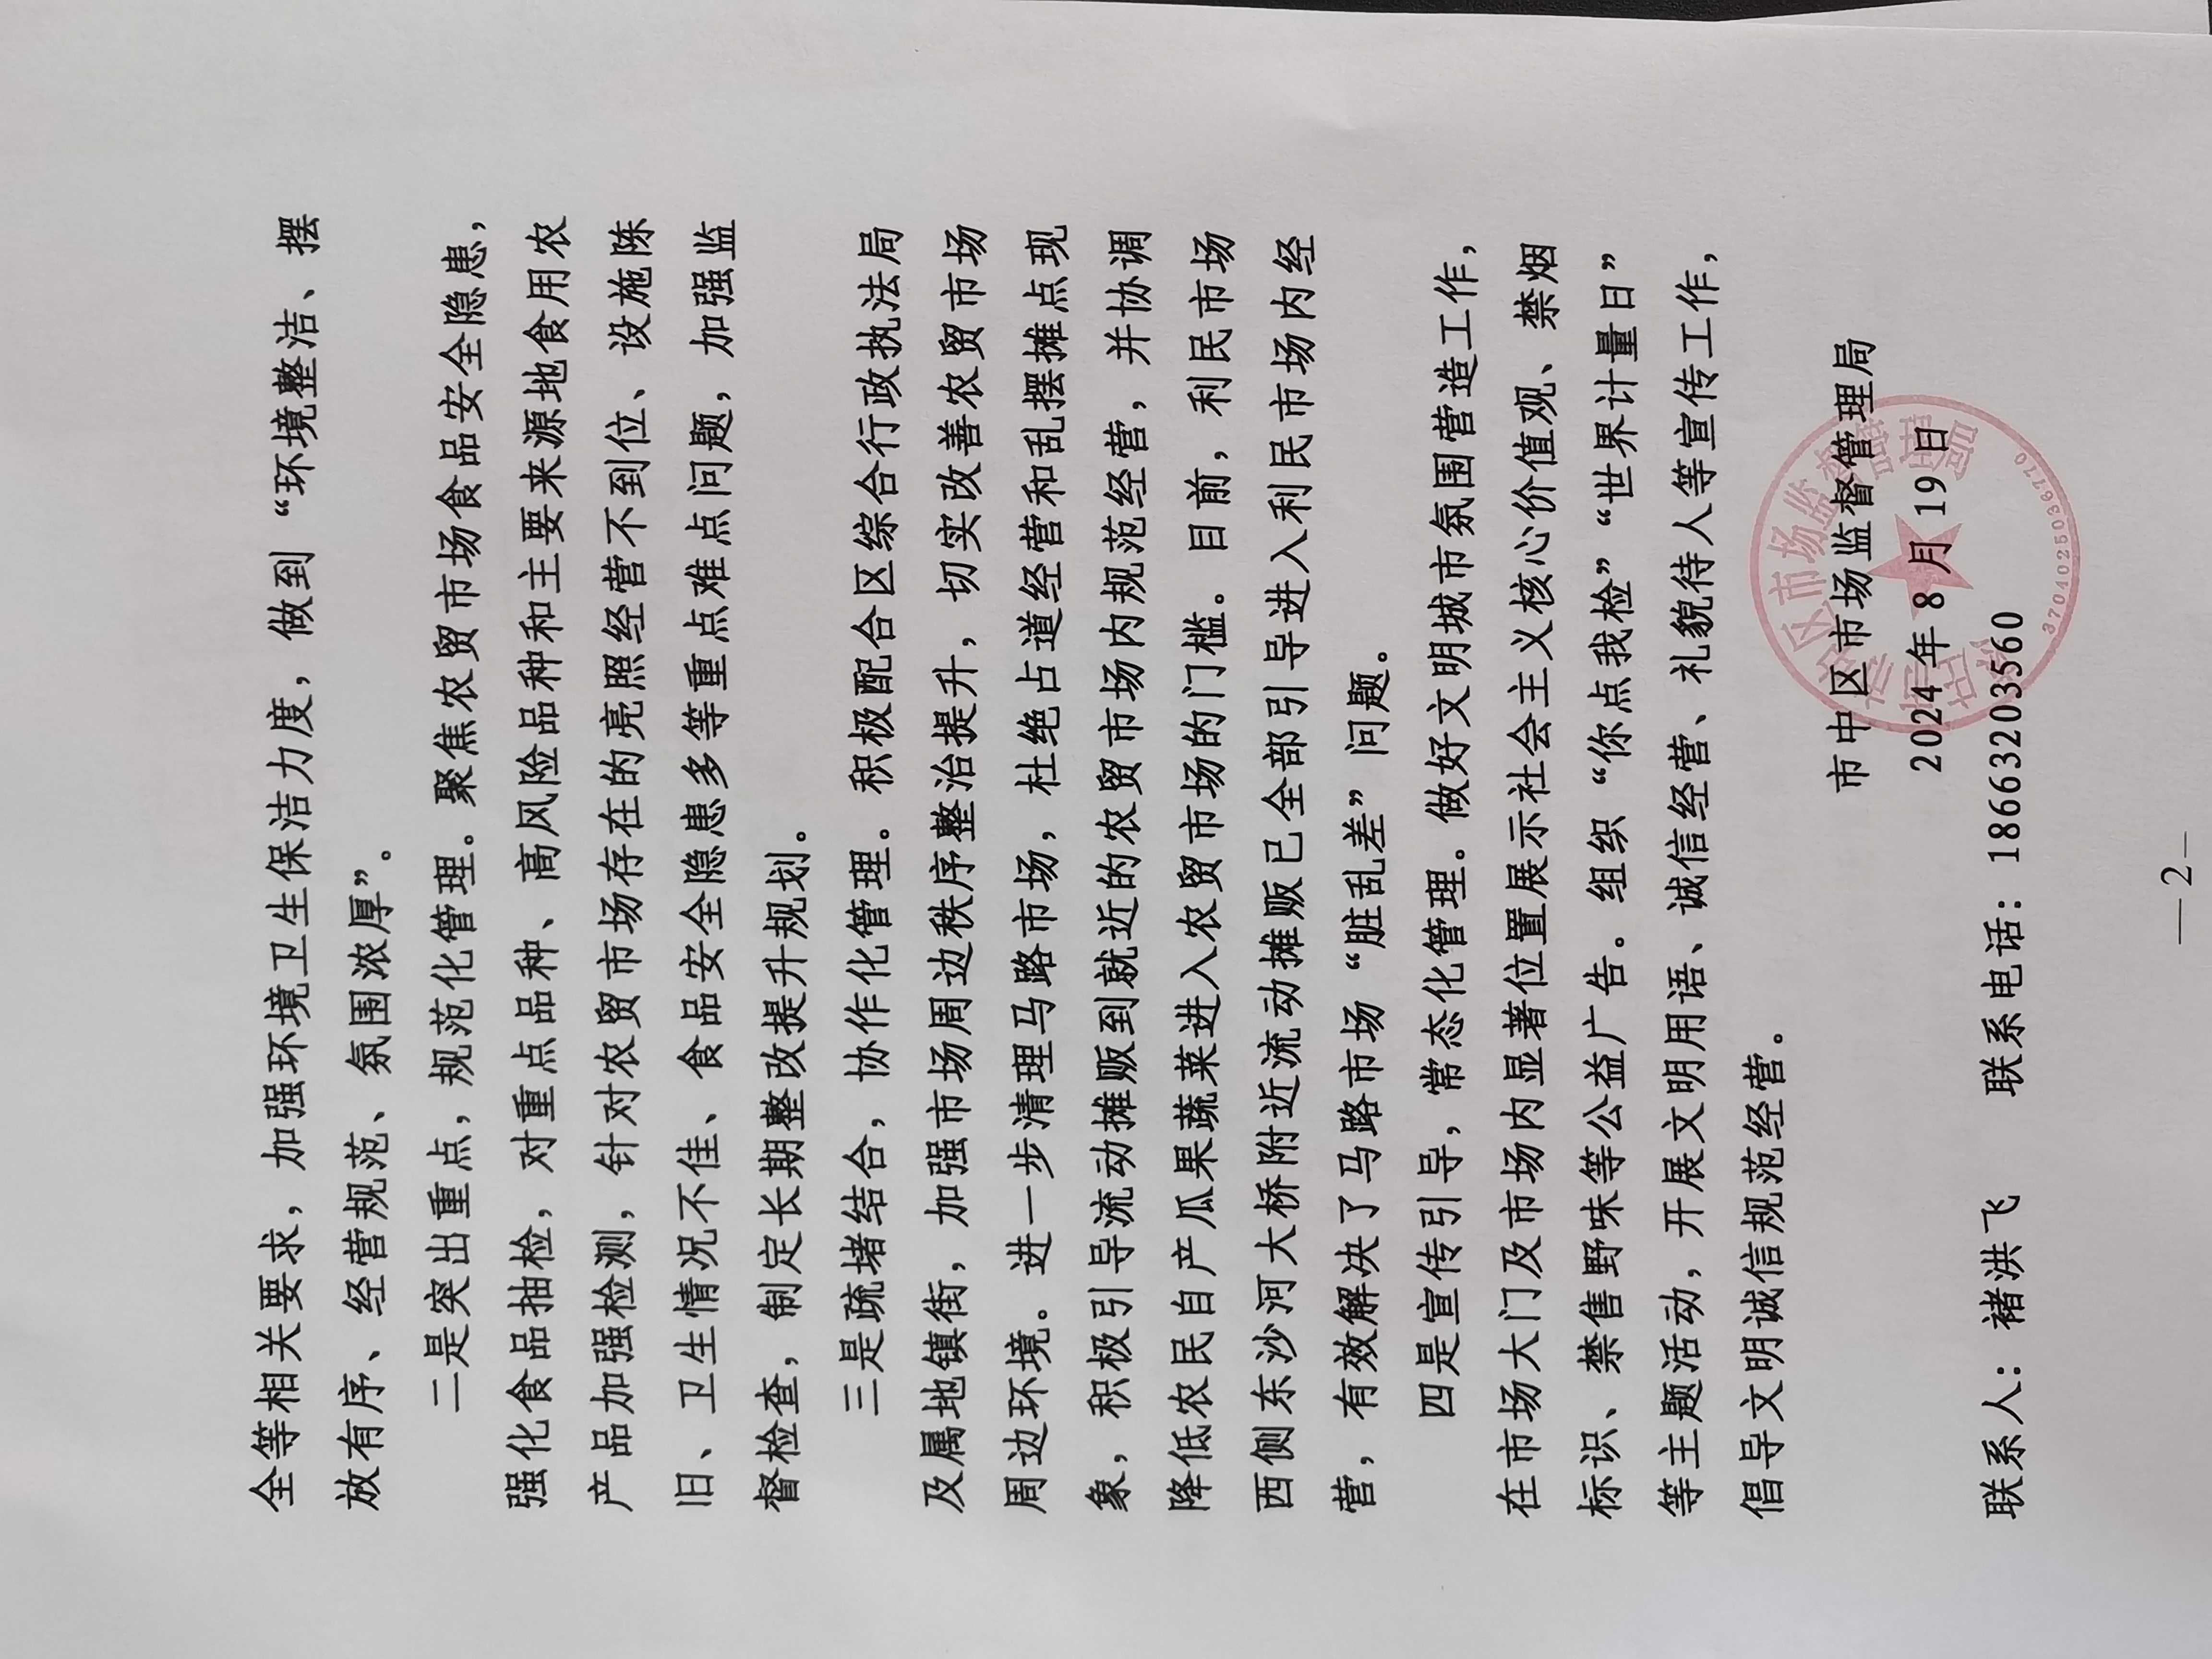 全等相关要求，加强环境卫生保洁力度，做到“环境整洁、摆
放有序、经营规范、氛围浓厚”。
二是突出重点，规范化管理。聚焦农贸市场食品安全隐患，
强化食品抽检，对重点品种、高风险品种和主要来源地食用农
产品加强检测，针对农贸市场存在的亮照经营不到位、设施陈
旧、卫生情况不佳、食品安全隐患多等重点难点问题，加强监
督检查，制定长期整改提升规划。
三是疏堵结合，协作化管理。积极配合区综合行政执法局
及属地镇街，加强市场周边秩序整治提升，切实改善农贸市场
周边环境。进一步清理马路市场，杜绝占道经营和乱摆摊点现
象，积极引导流动摊贩到就近的农贸市场内规范经营，并协调
降低农民自产瓜果蔬菜进入农贸市场的门槛。目前，利民市场
西侧东沙河大桥附近流动摊贩已全部引导进入利民市场内经
营，有效解决了马路市场“脏乱差”问题。
四是宣传引导，常态化管理。做好文明城市氛围营造工作，
在市场大门及市场内显著位置展示社会主义核心价值观、禁烟
标识、禁售野味等公益广告。组织“你点我检”“世界计量日”
等主题活动，开展文明用语、诚信经营、礼貌待人等宣传工作，
倡导文明诚信规范经营。
市中区市场监督管理局
2024年8月19日
3704025036770
联系人：褚洪飞 联系电话：18663203560
—2—